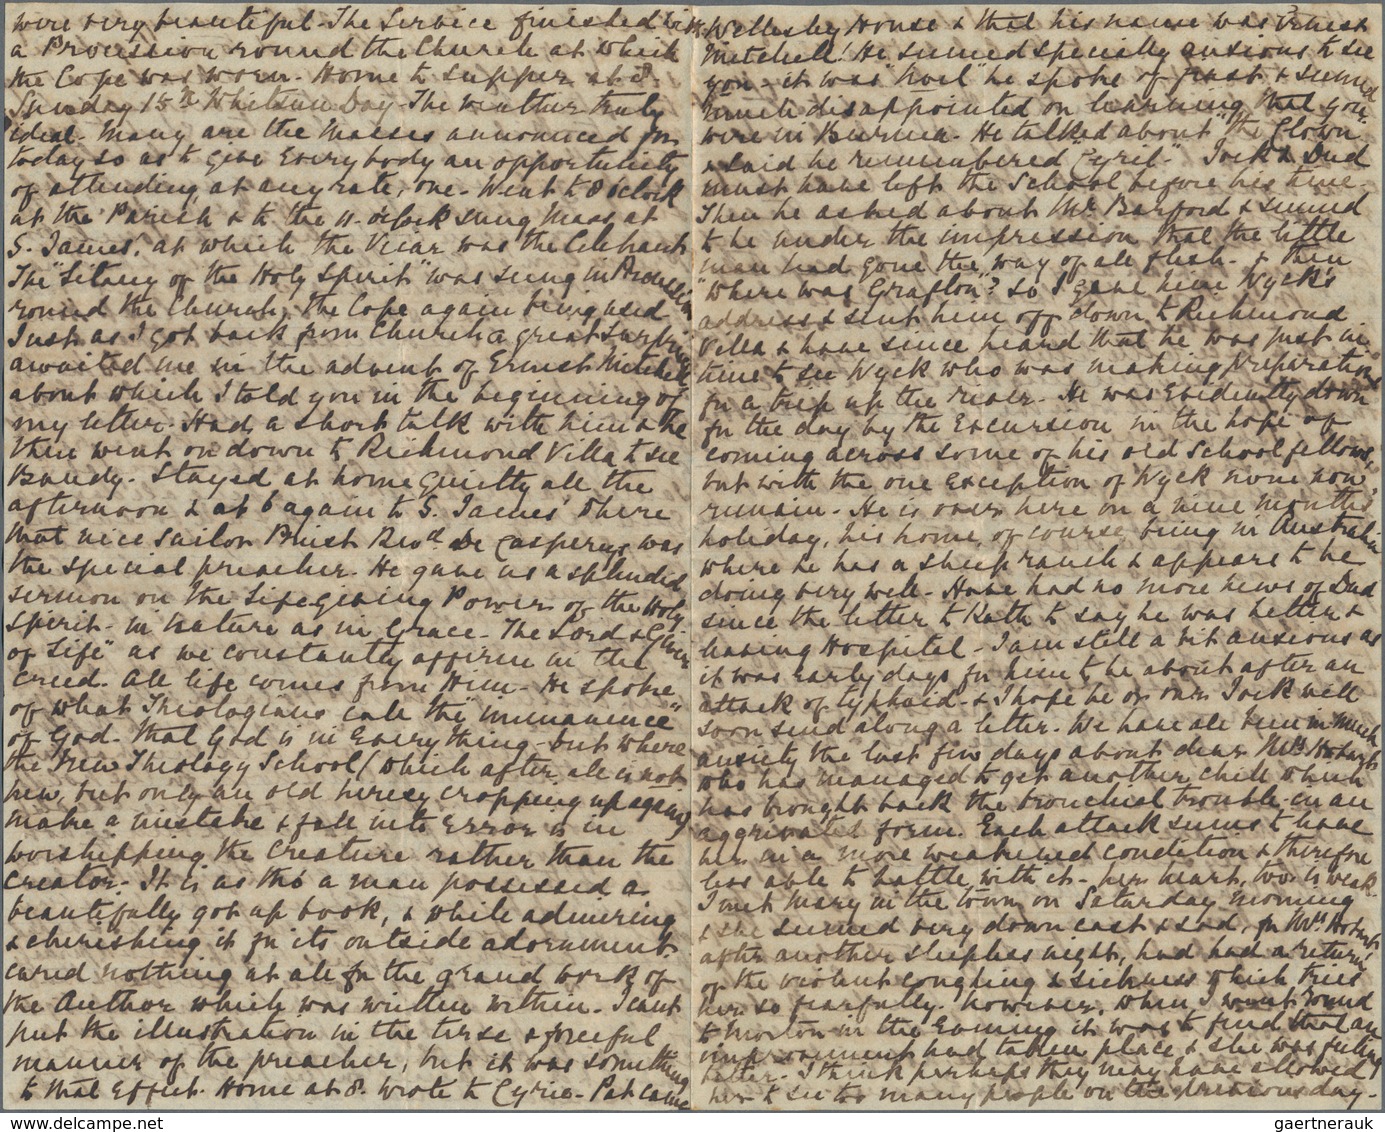 were very beautiful. The Service finished with
a Procession round the Church at which
the Cope was worn. Home to supper at 8.
Sunday 15th Whitsun Day. The weather truly
ideal. Many are the Masses announced for
today so as to give Everybody an opportunity
of attending at any rate, one. Went to 8 o'clock
at the Parish & to the 11. o'clock sung Mass at
S. James', at which the Vicar was the Celebrant
The "Litany of the Holy Spirit" was sung in Procession
round the Church, the Cope again being used
Just as I got back from Church a great surprise
awaited me in the advent of Ernest Mitchell
about which I told you in the beginning of
my letter. Had a short talk with him & he
then went on down to Richmond Villa to see
Bandy. Stayed at home quietly all the
afternoon & at 6 again to S. James' where
that nice sailor Priest Revd De was
the special preacher. He gave us a splendid
sermon on the Life giving Power of the Holy
Spirit - in Nature as in Grace - "The Lord & Giver
of Life" as we constantly affirm in the
creed. All life comes from Him - He spoke
of what Theologians call the "immanence"
of God - that God is in Everything - but where
the New Theology School (which after all is not
new, but only an old heresy cropping up again)
make a mistake & fall into Error is in
worshipping the Creature rather than the
Creator. It is as tho' a man possessed a
beautifully got up book, & while admiring
& cherishing it for its outside adornment
cared nothing at all for the grand work of
the Author which was written within. I cant
put the illustration in the terse & forceful
manner of the preacher, but it was something
to that Effect. Home at 8. wrote to Cyric. Pat came
Wellesley House & that his name was Ernest
Mitchell! He seemed specially anxious to see
you - it was "Noel" he spoke of first & seemed
much disappointed on learning that you
were in Burma. He talked about "the Clown"
& said he remembered "Cyril." Jack & Dud
must have left the School before his time.
Then he asked about Mr Barford & seemed
to be under the impression that the little
man had gone the way of all flesh - & then
"Where was Grafton"? so I gave him Wyck's
address & sent him off down to Richmond
Villa & have since heard that he was just in
time to see Wyck who was making preparations
for a trip up the river. He was Evidently down
for the day by the Excursion in the hope of
coming across some of his old School fellows,
but with the one Exception of Wyck none now
remain. He is over here on a nine months
holiday, his home, of course being in Australia
where he has a sheep ranch & appears to be
doing very well. Have had no more news of Dud
since the letter to Kath to say he was better &
leaving Hospital. I am still a bit anxious as
it was Early days for him to be about after an
attack of typhoid - & I hope he or our Jack will
soon send along a letter. We have all been in much
anxiety the last few days about dear Mrs Hobart
who has managed to get another chill which
has brought back the bronchial trouble in an
aggrivated form. Each attack seems to have
her in a more weakened condition & therefore
less able to battle with it - her heart, too is weak.
I met Mary in the town on Saturday morning
& she seemed very down cast & sad, for Mrs Hobart
after another sleepless night, had had a return
of the violent coughing & sickness which tries
her so fearfully. However, when I went round
to Morton in the Evening it was to find that an
improvement had taken place & she was feeling
better. I think perhaps they may have allowed
her to see too many people on the previous day.
gaertnerauk